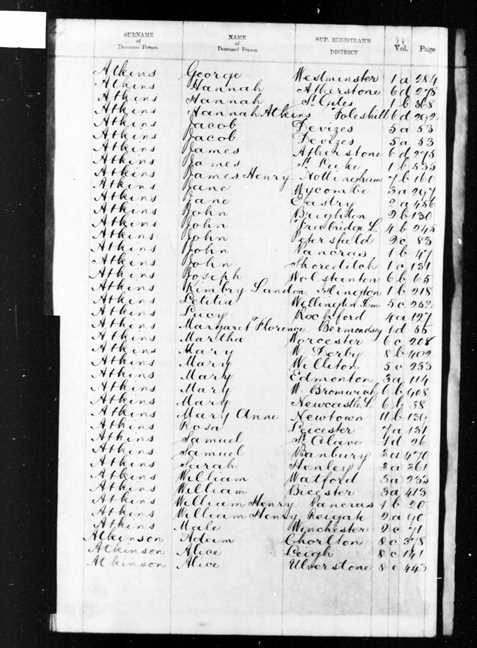 SURNAME of Deceased Person NAME of Deceased Person SUP. REGISTRAR'S DISTRICT Vol. Page
Atkins George Westminster 1a 284
Atkins Hannah Atherstone 6d 275
Atkins Hannah St Giles 1b 368
Atkins Hannah Atkins Foleshill 6d 292
Atkins Jacob Devizes 5a 53
Atkins Jacob Devizes 5a 53
Atkins James Atherstone 6d 275
Atkins James St Luke 1b 535
Atkins James Henry Nottingham 7b 161
Atkins Jane Wycombe 3a 297
Atkins Jane Eastry 2a 456
Atkins John Brighton 2b 130
Atkins John Trowbridge 4b 245
Atkins John Petersfield 2c 83
Atkins John Pancras 1b 47
Atkins John Shoreditch 1c 131
Atkins Joseph Wolstanton 6b 65
Atkins Kimby Landon Islington 1b 218
Atkins Letitia Wellington Som 5c 252
Atkins Lucy Rochford 4a 127
Atkins Margaret Florence Bermondsey 1d 55
Atkins Martha Worcester 6c 208
Atkins Mary W. Derby 8b 402
Atkins Mary Williton 5c 253
Atkins Mary Edmonton 3a 114
Atkins Mary W. Bromwich 6b 408
Atkins Mary Newcastle 6b 58
Atkins Mary Anne Newtown 11b 130
Atkins Rosa Leicester 7a 131
Atkins Samuel St Olave 1d 26
Atkins Samuel Banbury 3a 470
Atkins Sarah Henley 3a 361
Atkins William Watford 3a 235
Atkins William Bicester 3a 413
Atkins William Henry Pancras 1b 20
Atkins William Henry Reigate 2a 90
Atkins Male Winchester 2c 71
Atkinson Adam Chorlton 8c 378
Atkinson Alice Leigh 8c 141
Atkinson Alice Ulverstone 8e 443